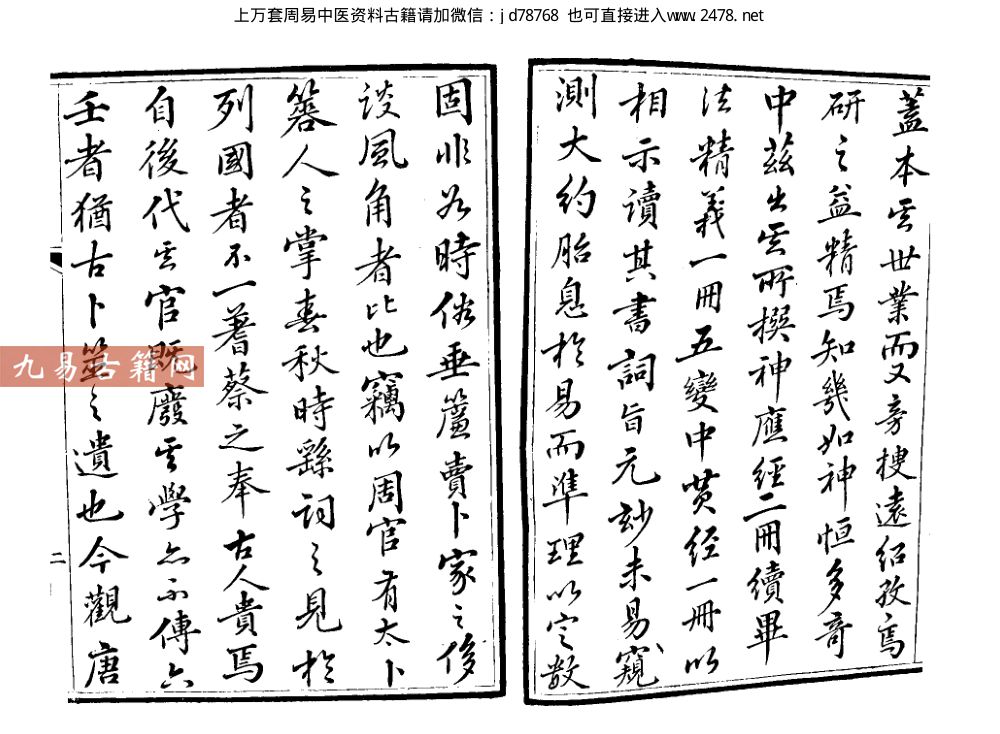 上万套周易中医资料古籍请加微信：jd78768 也可直接进入www.2478.net
蓋本其世業而又旁搜遠紹孜焉
研之益精焉知幾如神恒多奇
中茲出其所撰神應經二冊續畢
法精義一冊五變中黃經一冊以
相示讀其書詞旨元妙未易窺
測大約胎息於易而準理以定數
固非如時俗垂簾賣卜家之侈
談風角者比也竊以周官有太卜
簭人之掌春秋時繇詞之見於
列國者不一蓍蔡之奉古人貴焉
自後代其官既廢其學亦不傳六
壬者猶古卜筮之遺也今觀唐
二
九易古籍网